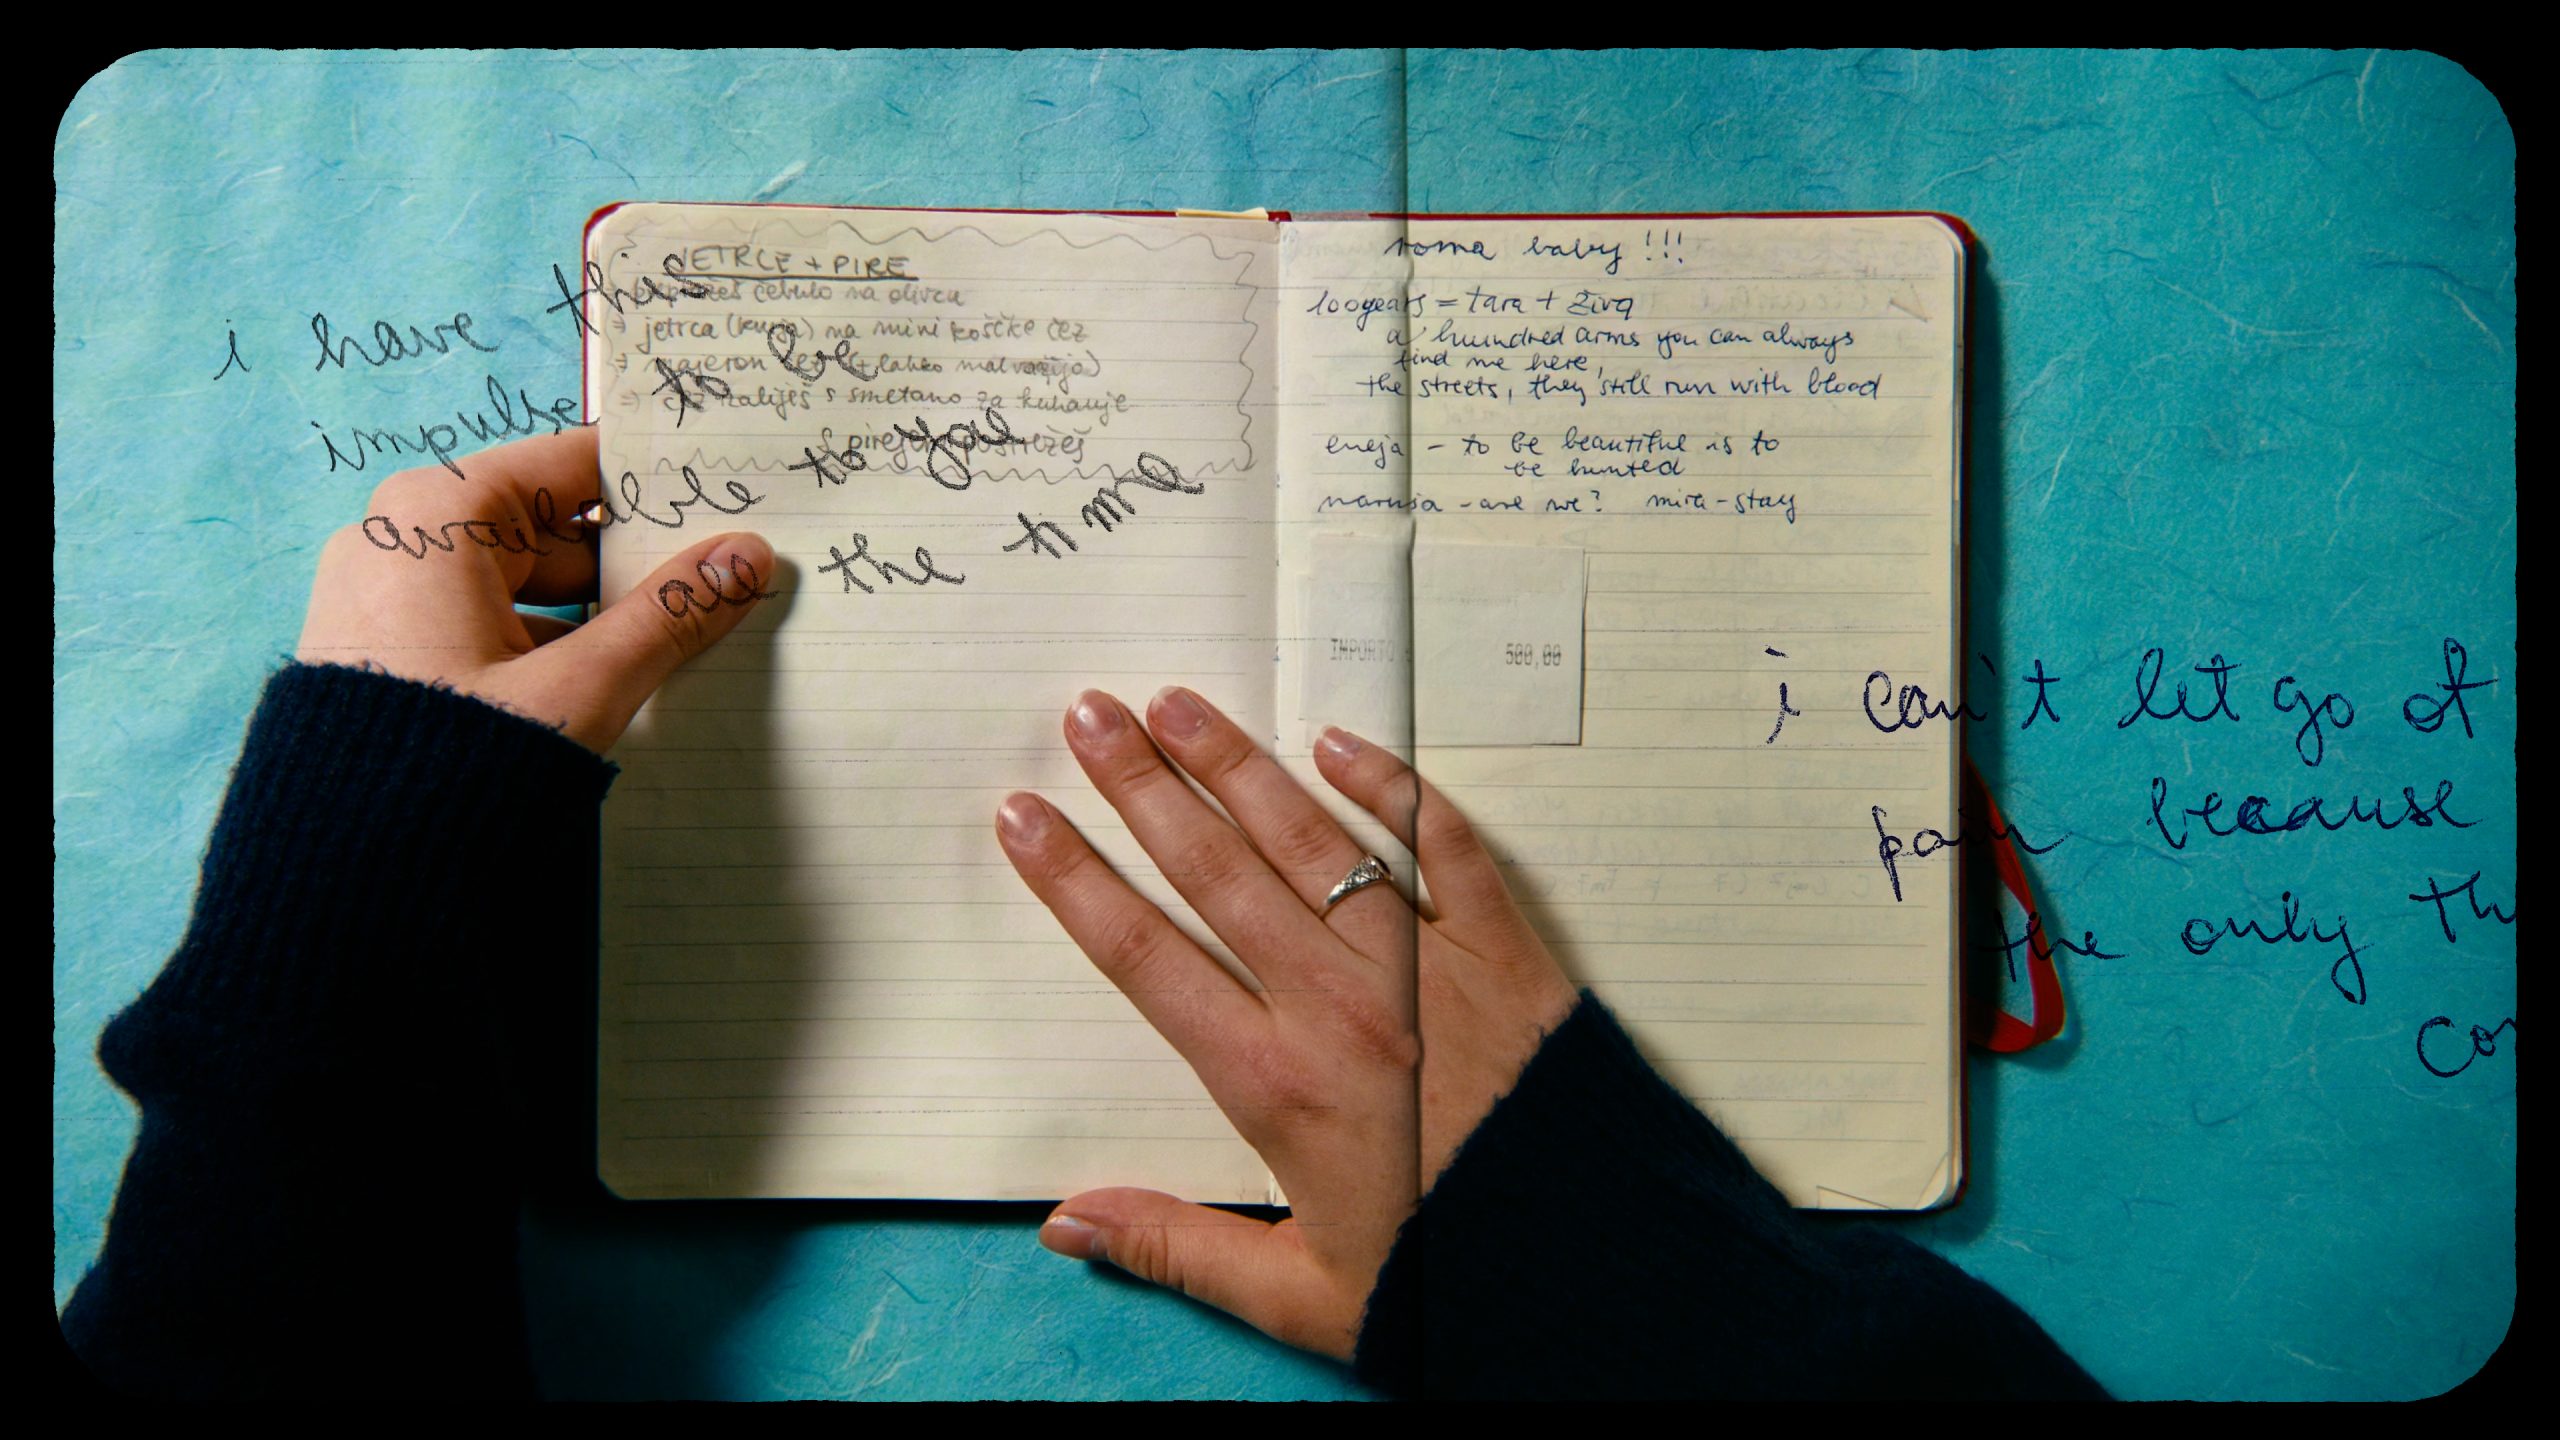 JETRCE + PIRE
prepražeš čebulo na olivcu
⇒ jetrca (kurja) na mini koščke čez
⇒ majeron čez (+ lahko malvazija)
⇒ čez zaliješ s smetano za kuhanje
& pirejem postrežeš
i have this
impulse to be
available to you
all the time
roma baby !!!
100years = tara + živa
a hundred arms you can always
find me here,
the streets, they still run with blood
eneja - to be beautiful is to
be hunted
marusa - are we? mira - stay
IMPORTO 500,00
i can't let go of
pain because
the only th
con